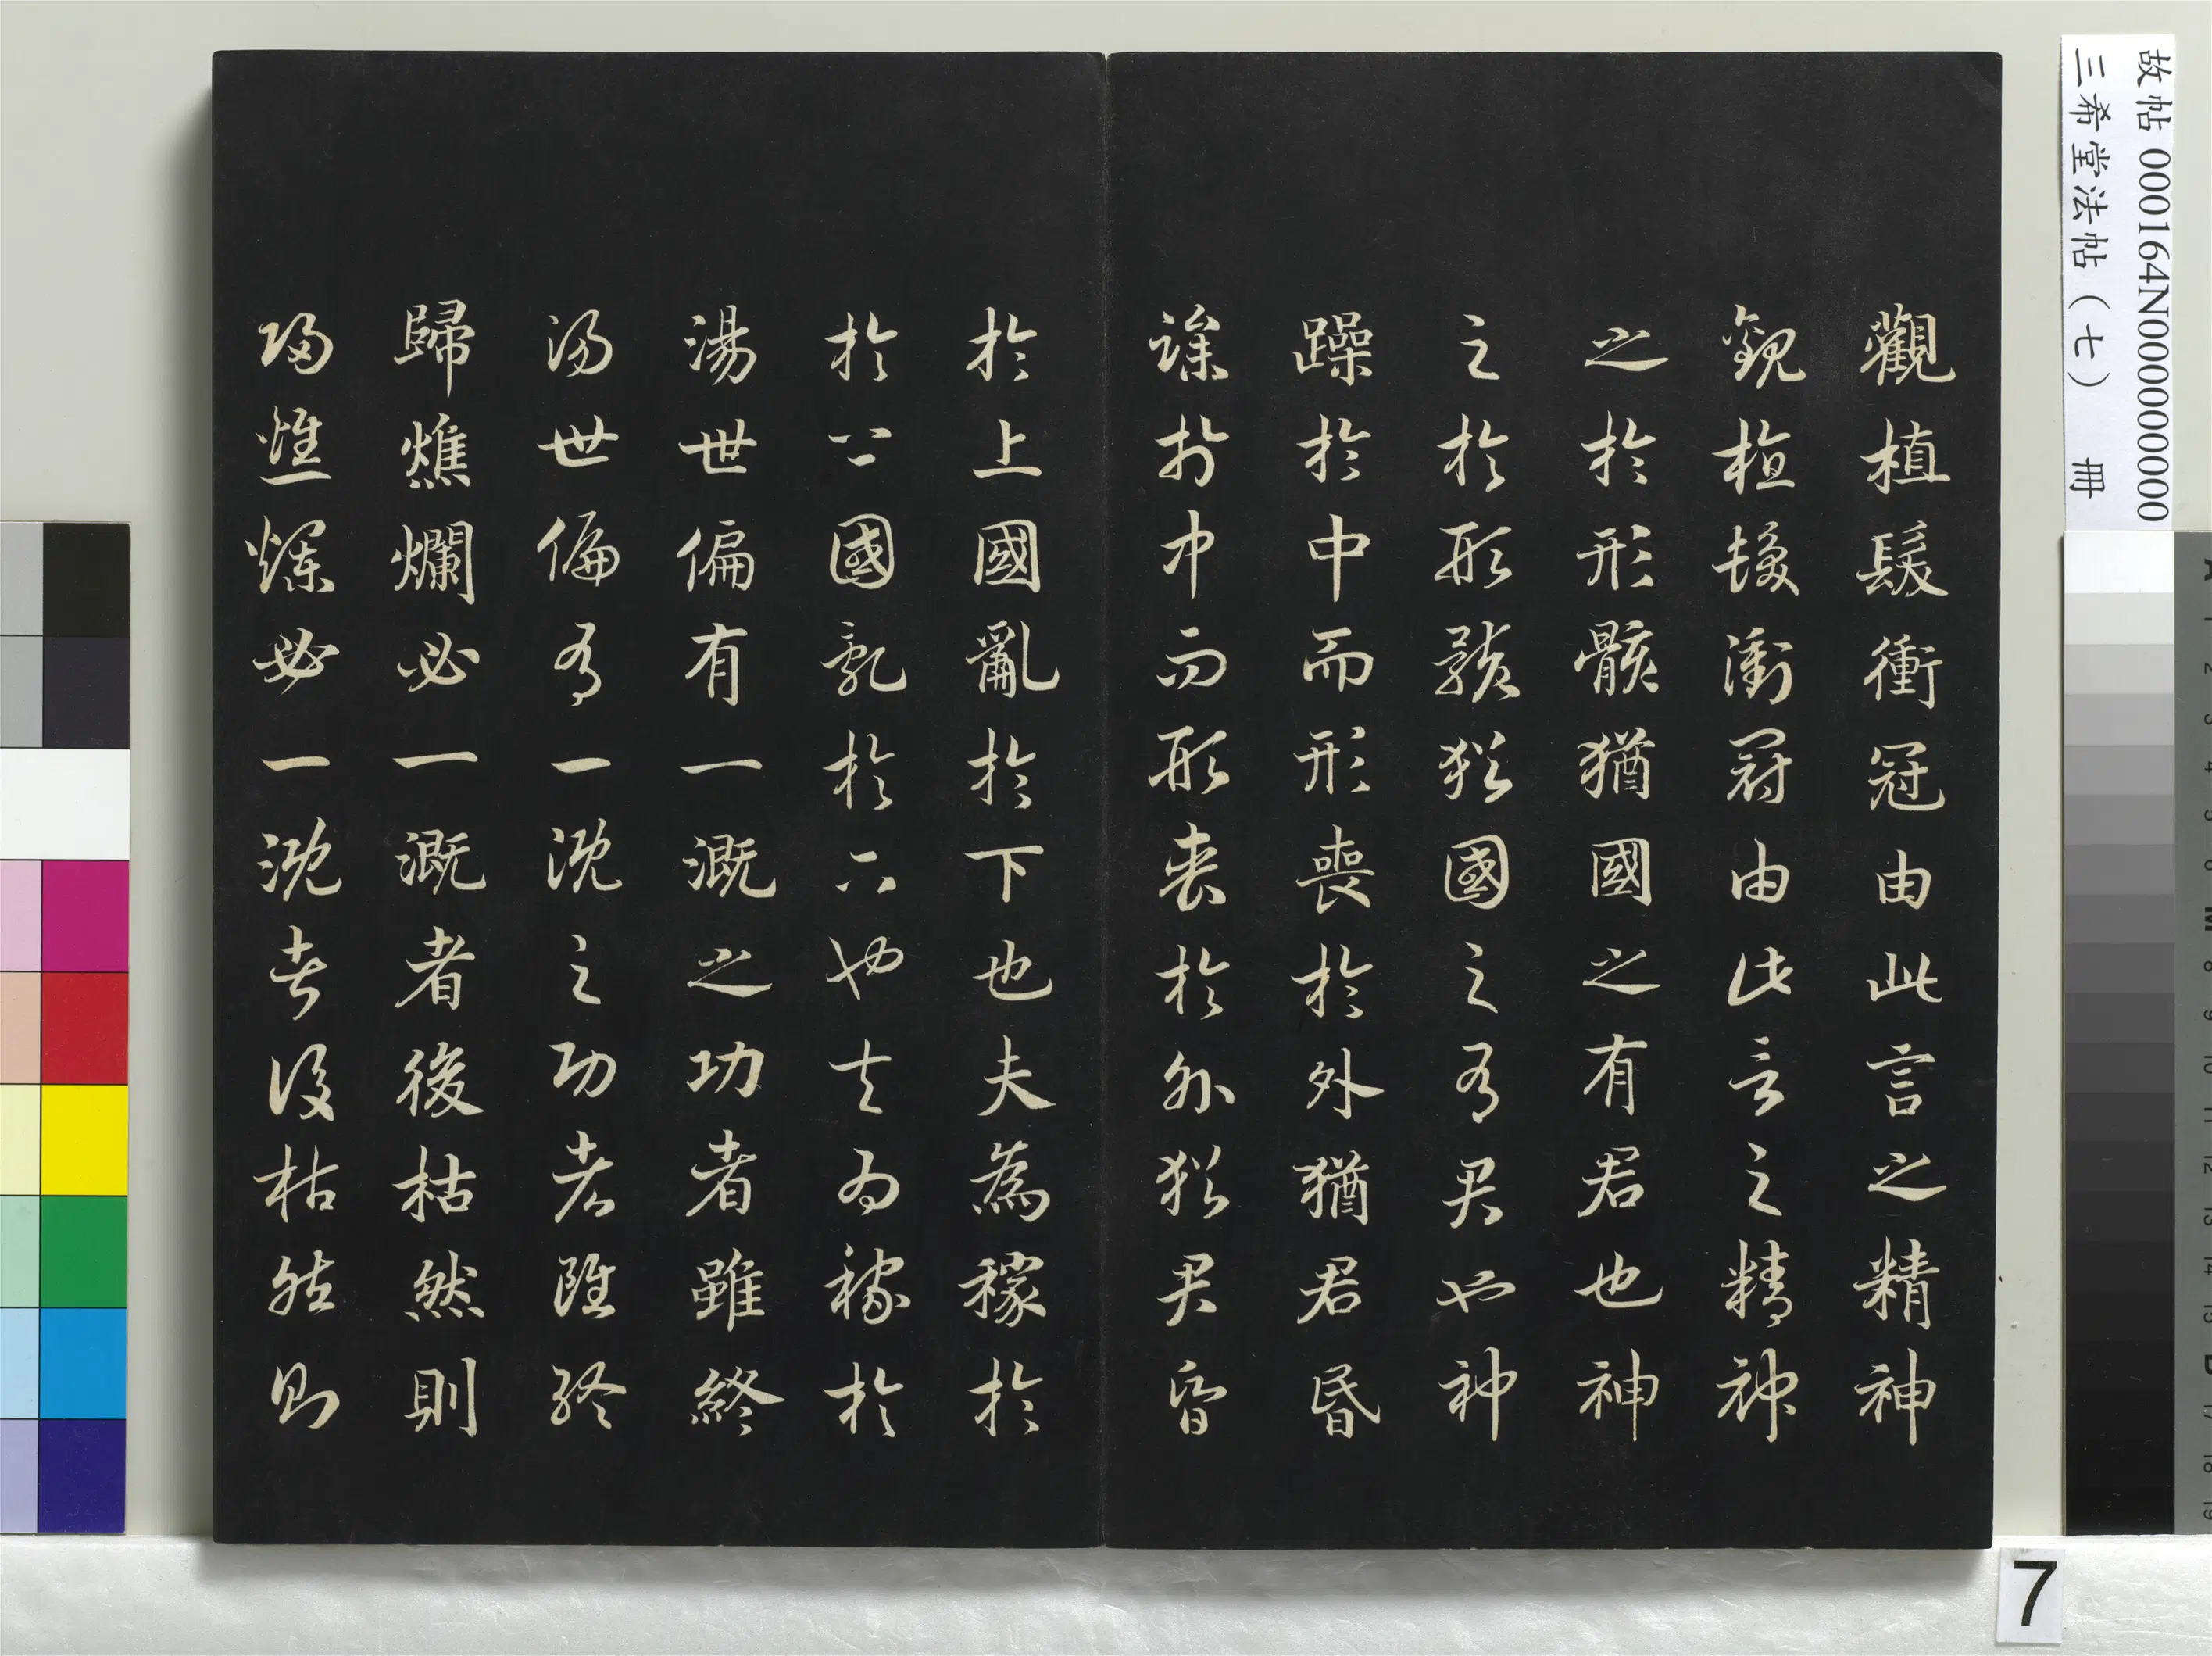 觀植髮衝冠由此言之精神
觀植髮衝冠由此言之精神
之於形骸猶國之有君也神
之於形骸猶國之有君也神
躁於中而形喪於外猶君昏
躁於中而形喪於外猶君昏
於上國亂於下也夫為稼於
於上國亂於下也夫為稼於
湯世偏有一溉之功者雖終
湯世偏有一溉之功者雖終
歸燋爛必一溉者後枯然則
歸燋爛必一溉者後枯然則
故帖 000164N000000000
三希堂法帖（七） 冊
7